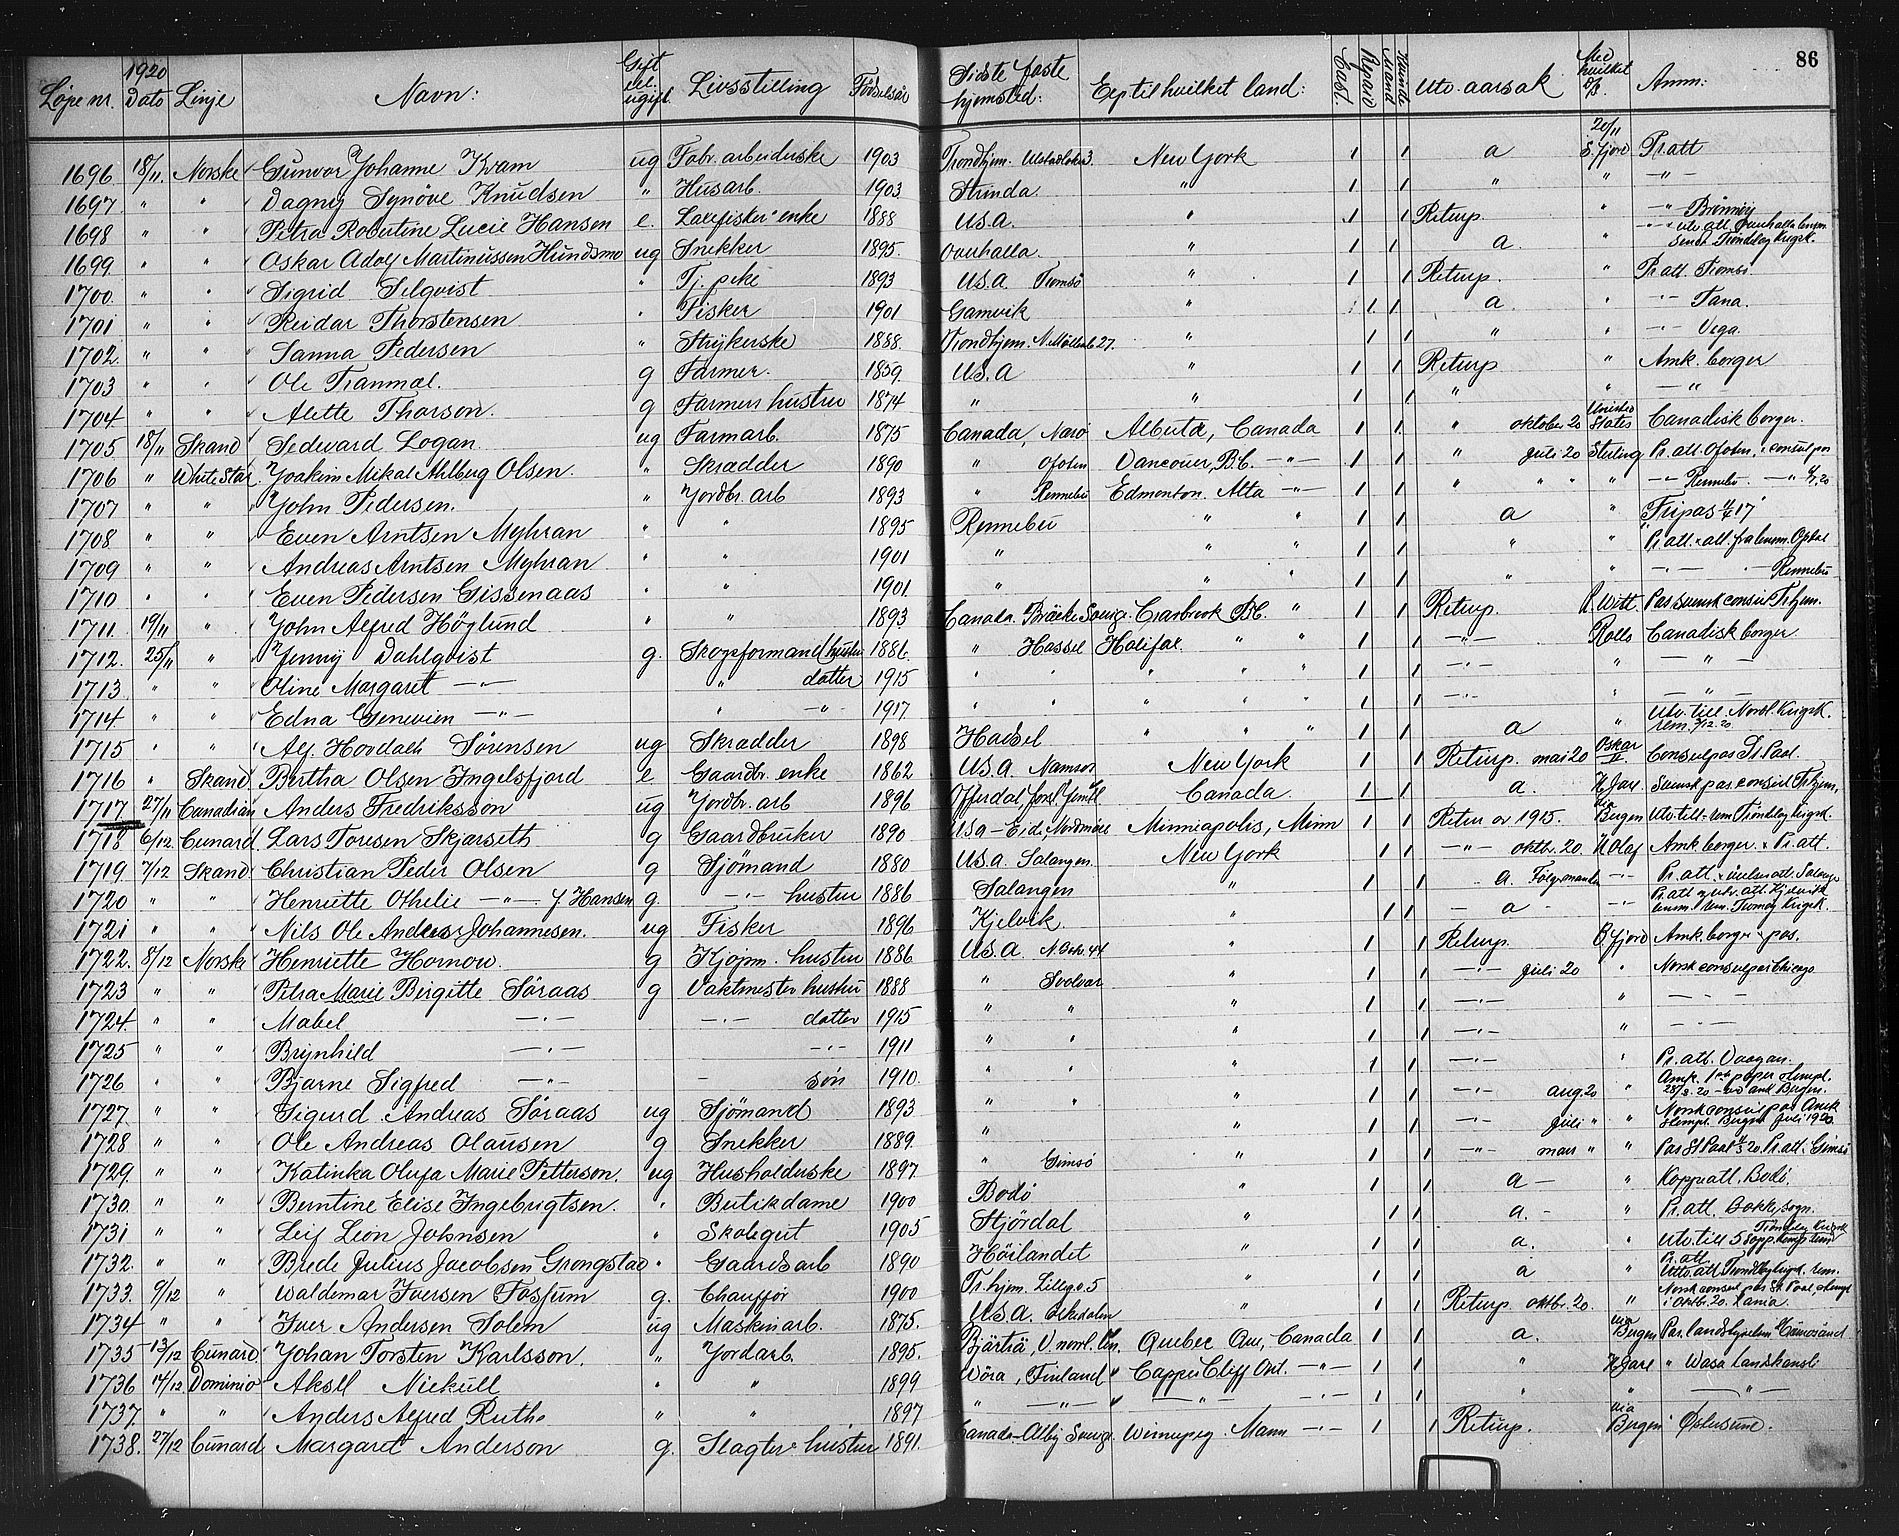 86
1920
Løpe nr. Dato Linje Navn: Gift el. ugift. Livsstilling Fødselsår Sidste faste hjemsted: Exp. til hvilket land: Utv. aarsak Med hvilket D/S. Anm:
1696 18/11. Norske Gunvor Johanne Kvam ug Fabr. arbeiderske 1903 Trondhjem. New York 1 1 a 20/11 S. fjord Pr. att
1697 " " Dagny Synöve Knudsen " Husarb. 1903 Strinda. " 1 1 " " — " —
1698 " " Petra Robertine Lucie Hansen e. Laxefisker enke 1888 U.S.A. " 1 1 Returp. " — " — Brönnöy
1699 " " Oskar Adolf Martinussen Hundsmo ug Snekker 1895. Overhalla. " 1 1 a "
1700. " " Sigrid Selqvist " Tj. pike 1893 U.S.A Tromsö " 1 1 Returp. " Pr. att. Tromsö.
1701 " " Reidar Thorstensen " Fisker 1901 Gamvik " 1 1 a. " — " — Tana.
1702. " " Sanna Pedersen " Strykerske 1888. Trondhjem. N. Möllenb 27. " 1 1 " " — " — Vega.
1703 " " Ole Tranmæl. g Farmer. 1859. U.S.A " 1 1 Returp " Amk. borger
1704 " " Alette Thorson. g Farmers hustru 1874 " " 1 1 " " — " —
1705 18/11 Skand Sedward Logan. ug Farmarb. 1875 Canada, Narö Alberta, Canada 1 1 " oktober 20 United States Canadisk borger.
1706 " White Star. Joakim Mikal Ahlberg Olsen. " Skrædder 1890 " Ofoten Vancouver, B.C. — " — 1 1 " juli 20 Sterling Pr. att. Ofoten, + consulpas
1707 " " John Pedersen. " Jordbr. arb 1893 " Rennebu Edmonton. Alta — " — 1 1 " " " " — " — Rennebu. — " —
1708 " " Even Arntsen Myhran " " 1895 Rennebu " " 1 1 a " Fripas 4/4 17
1709 " " Andreas Arntsen Myhran " " 1901 " " " 1 1 " "
1710 " " Even Pedersen Gissenaas " " 1901. " " " 1 1 " " — " — Rennebu
1711. 19/11 " John Alfred Höglund " " 1893 Canada. Bräcke Sverige. Cranbrook B.C. " 1 1 Returp. R. With Pas svensk consul Trhjem.
1712. 25/11 " Jenny Dahlqvist g. Skogsformand (hustru 1886. " Hassel Halifax. " " 1 1 — " — Rollo Canadisk borger
1713. " " Oline Margaret — " — " datter 1915 " " " " 1 1 — " — " — " —
1714 " " Edna Genevien — " — " — " — 1917. " " " " 1 1 — " — " — " —
1715 " " Alf Hovdach Sørensen ug Skrædder 1898 Hadsel " " " 1 1 a " Utv. till. Nordl. Krigsk.
1716 " Skand Bertha Olsen Ingelsfjord e Gaardbr. enke 1862 U.S.A. Namsos New York 1 1 Returp. mai 20 Oskar II. Consulpas St Paul
1717 27/11 Canadian Anders Fredriksson ug Jordbr. arb 1896 Offerdal, Canada. 1 1 a. H. Jarl Svensk pas. consul Trhjem.
1718 6/12 Cunard Lars Toresen Skjærseth g Gaardbruker 1890 USA — Eide, Nordmöre Minniapolis, Minn 1 1 Retur av 1915. via Bergen Utv. till. Trondelag Krigsk.
1719. 7/12 Skand Christian Peder Olsen g Sjömand 1880 U.S.A. Salangen New York 1 1 — " — oktbr. 20. H. Olaf Amk. borger. + Pr. att.
1720 " " Henriette Othelie — " — f Hansen g. — " — hustru 1886 Salangen " 1 1 a. Følge manden — " —
1721 " " Nils Ole Anders Johannesen. ug Fisker 1896 Kjelvik. " 1 1 — a — — " —
1722. 8/12 Norske Henriette Hornow. g Kjøpm. hustru 1886 U.S.A. " 1 1 Returp. B. fjord Amk. borger + pas.
1723 " " Petra Marie Birgitte Söraas g Vaktmester hustru 1888 " Svolvær " 1 1 — " — juli 20 " Norsk consulpas Chicago
1724 " " Mabel — " — — " — datter 1915 " " " 1 1 — " — " — " —
1725 " " Brynhild — " — — " — 1911 " " " 1 1 — " — " — " —
1726 " " Bjarne Sigfred — " — — søn 1910. " " " 1 1 — " — " Pr. att. Vaagan.
1727. " " Sigurd Andreas Söraas ug Sjömand 1893 " " " 1 1 — " — aug 20 "
1728 " " Ole Andreas Olausen g Snekker 1889. " " 1 1 — " — juli " " Norsk consulpas
1729. " " Katinka Olufa Marie Petterson. ug Husholderske 1897 " Gimsö " 1 1 — " — mars " " Pas St Paul Pr. att. Gimsö
1730. " " Berntine Elise Ingebrigtsen. " Butikdame 1900 Bodö " 1 1 a — " Koppeatt. Bodö.
1731 " " Leif Leon Johnsen " Skolegut 1905 Stjördal " 1 1 a. — " Pr. att. Bakke sogn.
1732. " " Brede Julius Jacobsen Grongstad " Gaardsarb 1890 Höilandet " 1 1 a. "
1733. 9/12 " Waldemar Iversen Fosfum g. Chauffør 1900 Tr. hjem. Lilleg. 5 " 1 1 a
1734 " " Iver Andersen Solem ug Maskinarb. 1875. U.S.A. Orkedalen " 1 1 Returp. oktbr. 20. "
1735 13/12 Cunard. Johan Torsten Karlsson. " Jordarb. 1895. Bjärtrå, Quebec Que, Canada 1 1 a. via Bergen
1736 14/12 Dominio Aksell Nickull " " 1899 Wöra, Finland " Copper Cliff Ont. — " — 1 1 " H. Jarl " Wasa Landskansli
1737. " " Anders Alfred Ruth. " " 1897 " — " — " " — " — 1 1 " " — " —
1738. 27/12 Cunard Margaret Anderson g. Slagter hustru 1891. Canada — Alby Sverige. Winnipeg Mann — " — 1 1 Returp. via Bergen Østersund.